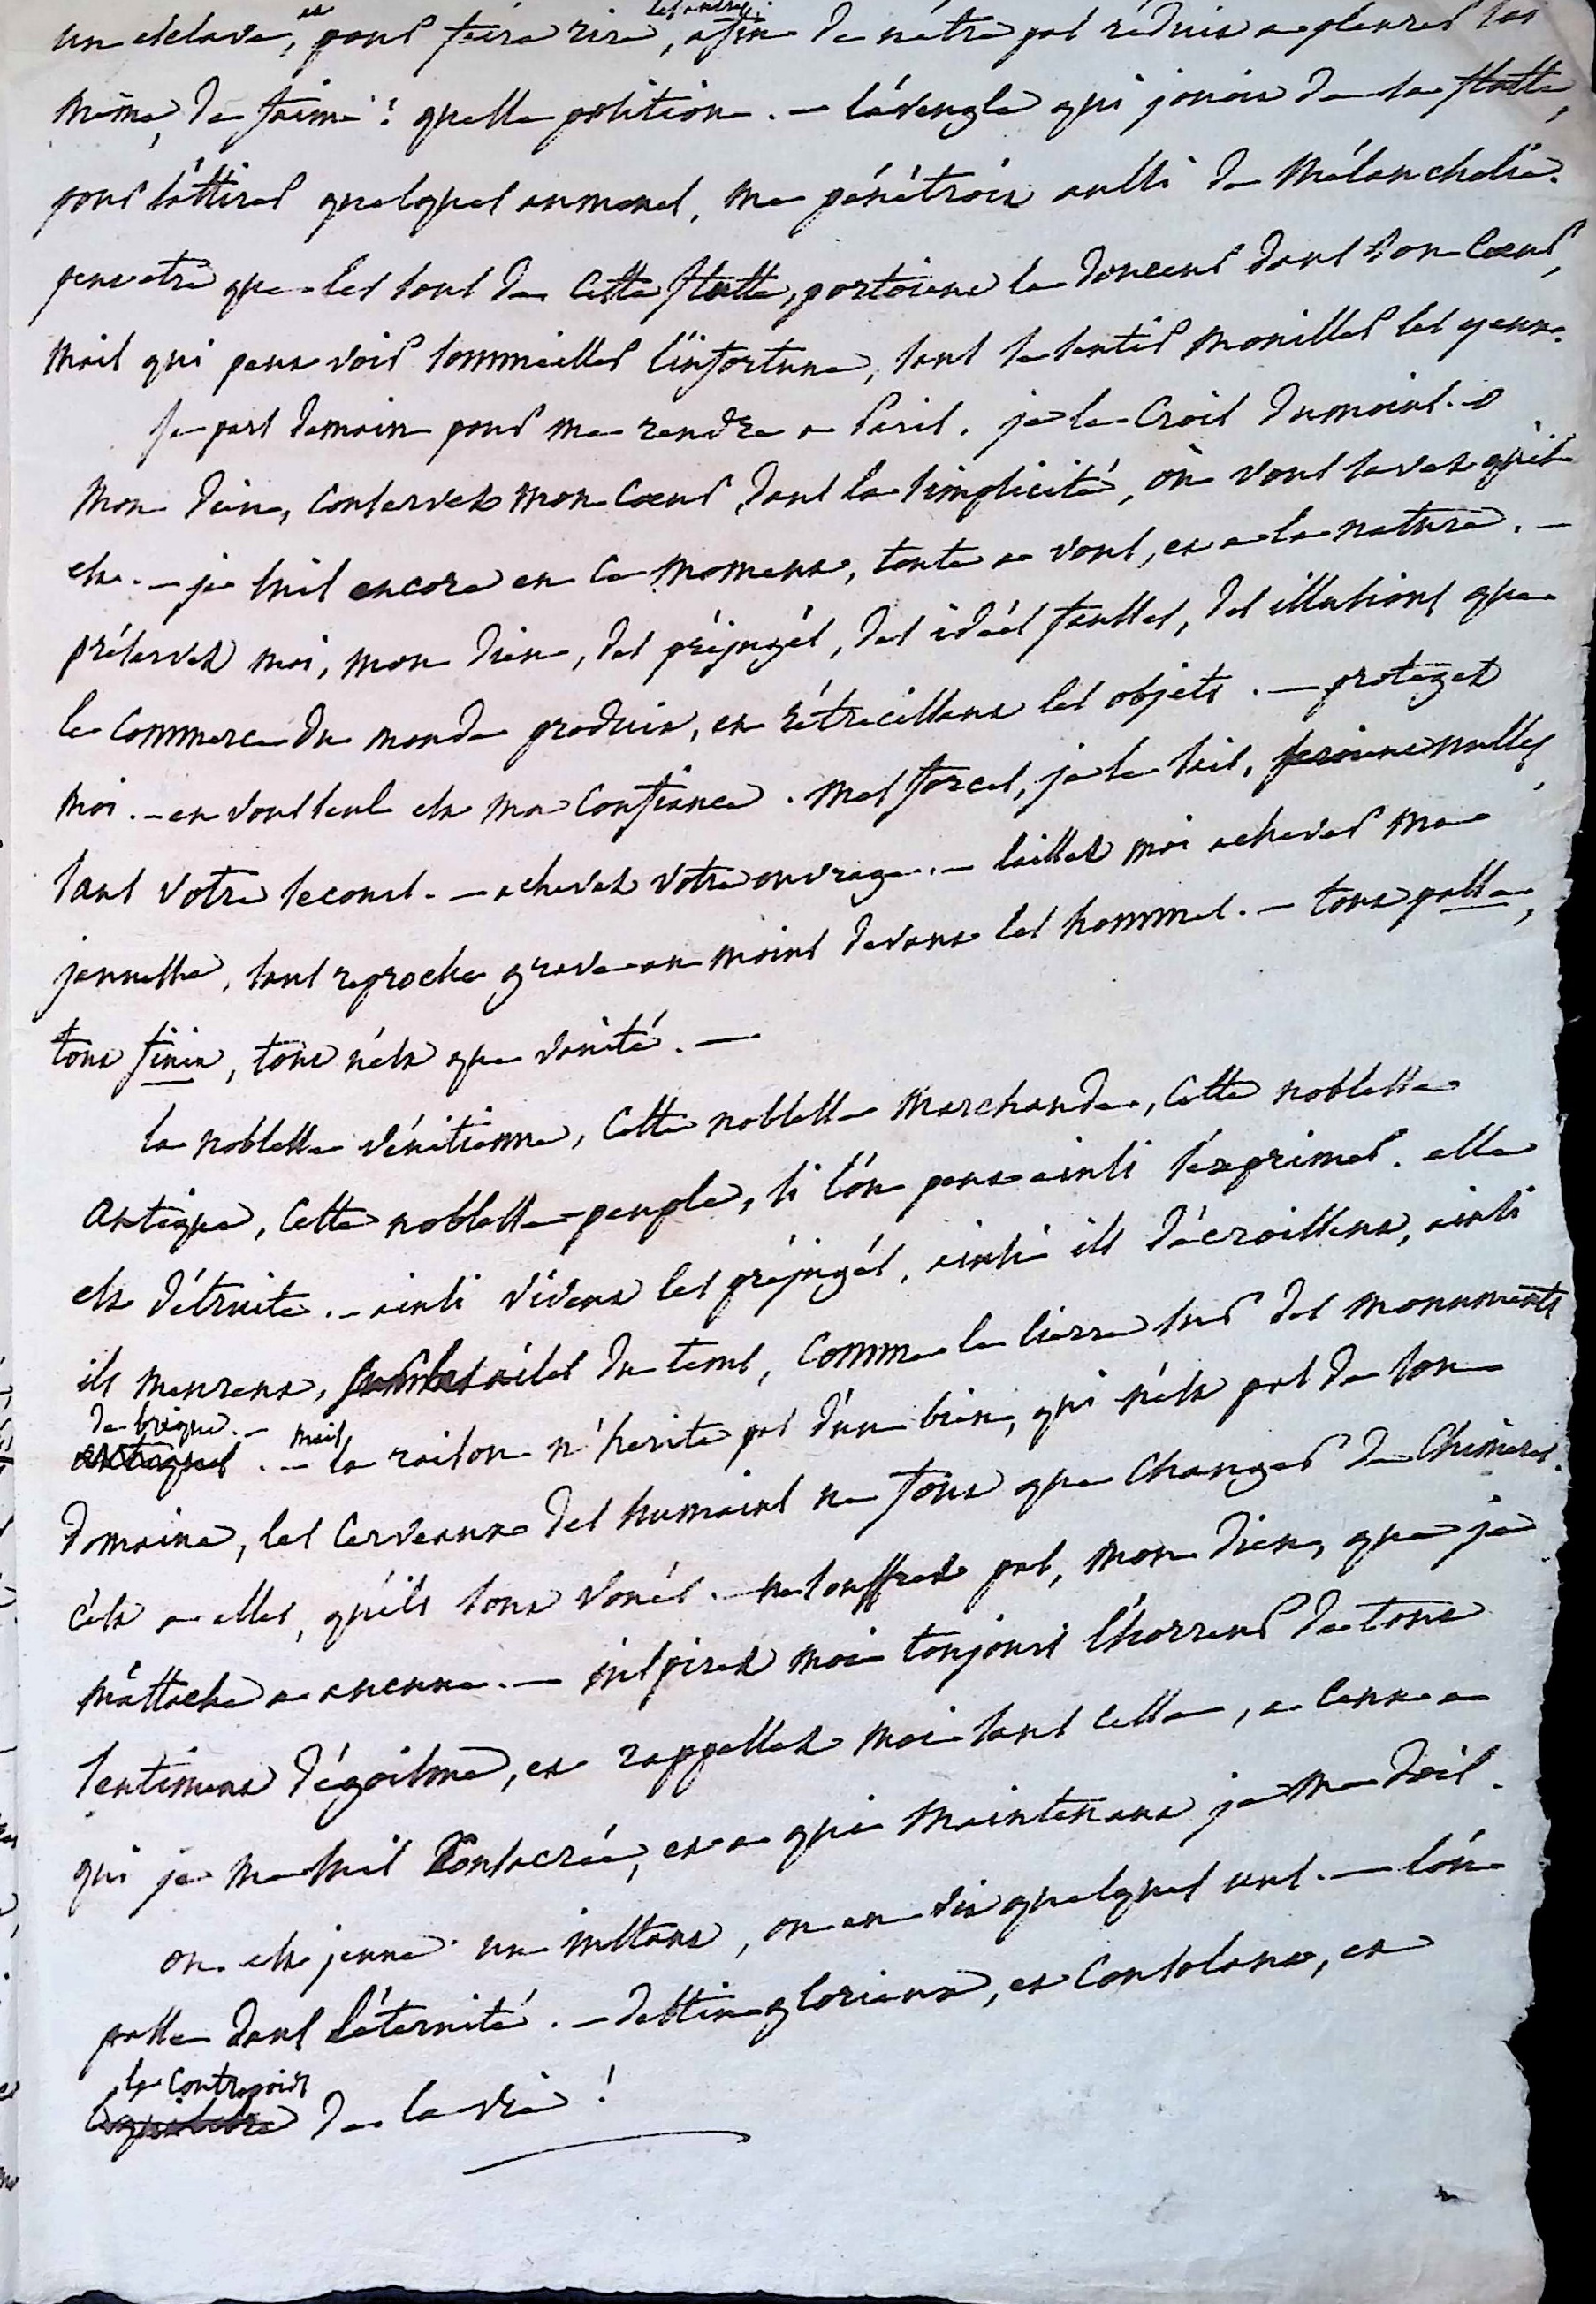 un esclave, et pour faire rire les autres, afin de nêtre pas réduit a pleurer soi
même, de faim ! quelle position. — l'aveugle qui jouoit de la flutte,
pour s'attirer quelques aumones, me pénétroit aussi de mélancholie.
peutetre que les sons de cette flutte, portoient la douceur dans son coeur,
mais qui peut voir sommeiller l'infortune, sans se sentir mouiller les yeux.
Je pars demain pour me rendre a Paris. je le crois dumoins. o
mon dieu, conservez mon coeur, dans la simplicité, où vous savez qu'il
est. — je suis encore en ce moment, toute a vous, et a la nature. —
préservez moi, mon dieu, des préjugés, des idées fausses, des illusions que
le commerce du monde produit, en rétrecissant les objets. — protegez
moi. — en vous seul est ma confiance. mes forces, je le sais, seroient nulles,
sans votre secours. — achevez votre ouvrage. — laissez moi achever ma
jeunesse, sans reproche grave au moins devant les hommes. — tout passe,
tout finit, tout n'est que vanité. —
la noblesse vénitienne, cette noblesse marchande, cette noblesse
antique, cette noblesse peuple, si l'on peut ainsi s'exprimer. elle
est détruite. — ainsi vivent les préjugés, ainsi ils décroissent, ainsi
ils meurent, sur les ailes du tems, comme le lierre sur des monuments
de brique. — mais,
antiques. — la raison n'hérite pas d'un bien, qui n'est pas de son
domaine, les cerveaux des humains ne font que changer de chimeres.
c'est a elles, qu'ils sont voués. — ne souffrez pas, mon dieu, que je
m'attache a aucune. — inspirez moi toujours l'horreur de tout
sentiment d'égoïsme, et rappellez moi sans cesse, a ceux a
qui je me suis consacrée, et a qui maintenant je me dois.
on est jeune un instant, on en vit quelques uns. — l'on
passe dans l'éternité. — destin glorieux, et consolant, et
le contrepoids
l'equilibre de la vie !